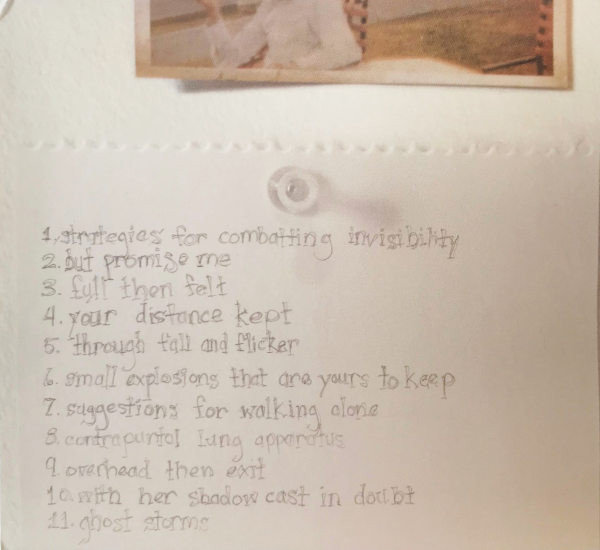 1. strategies for combatting invisibility
2. but promise me
3. full then felt
4. your distance kept
5. through fall and flicker
6. small explosions that are yours to keep
7. suggestions for walking alone
8. contrapuntal lung apparatus
9. overhead then exit
10. with her shadow cast in doubt
11. ghost storms